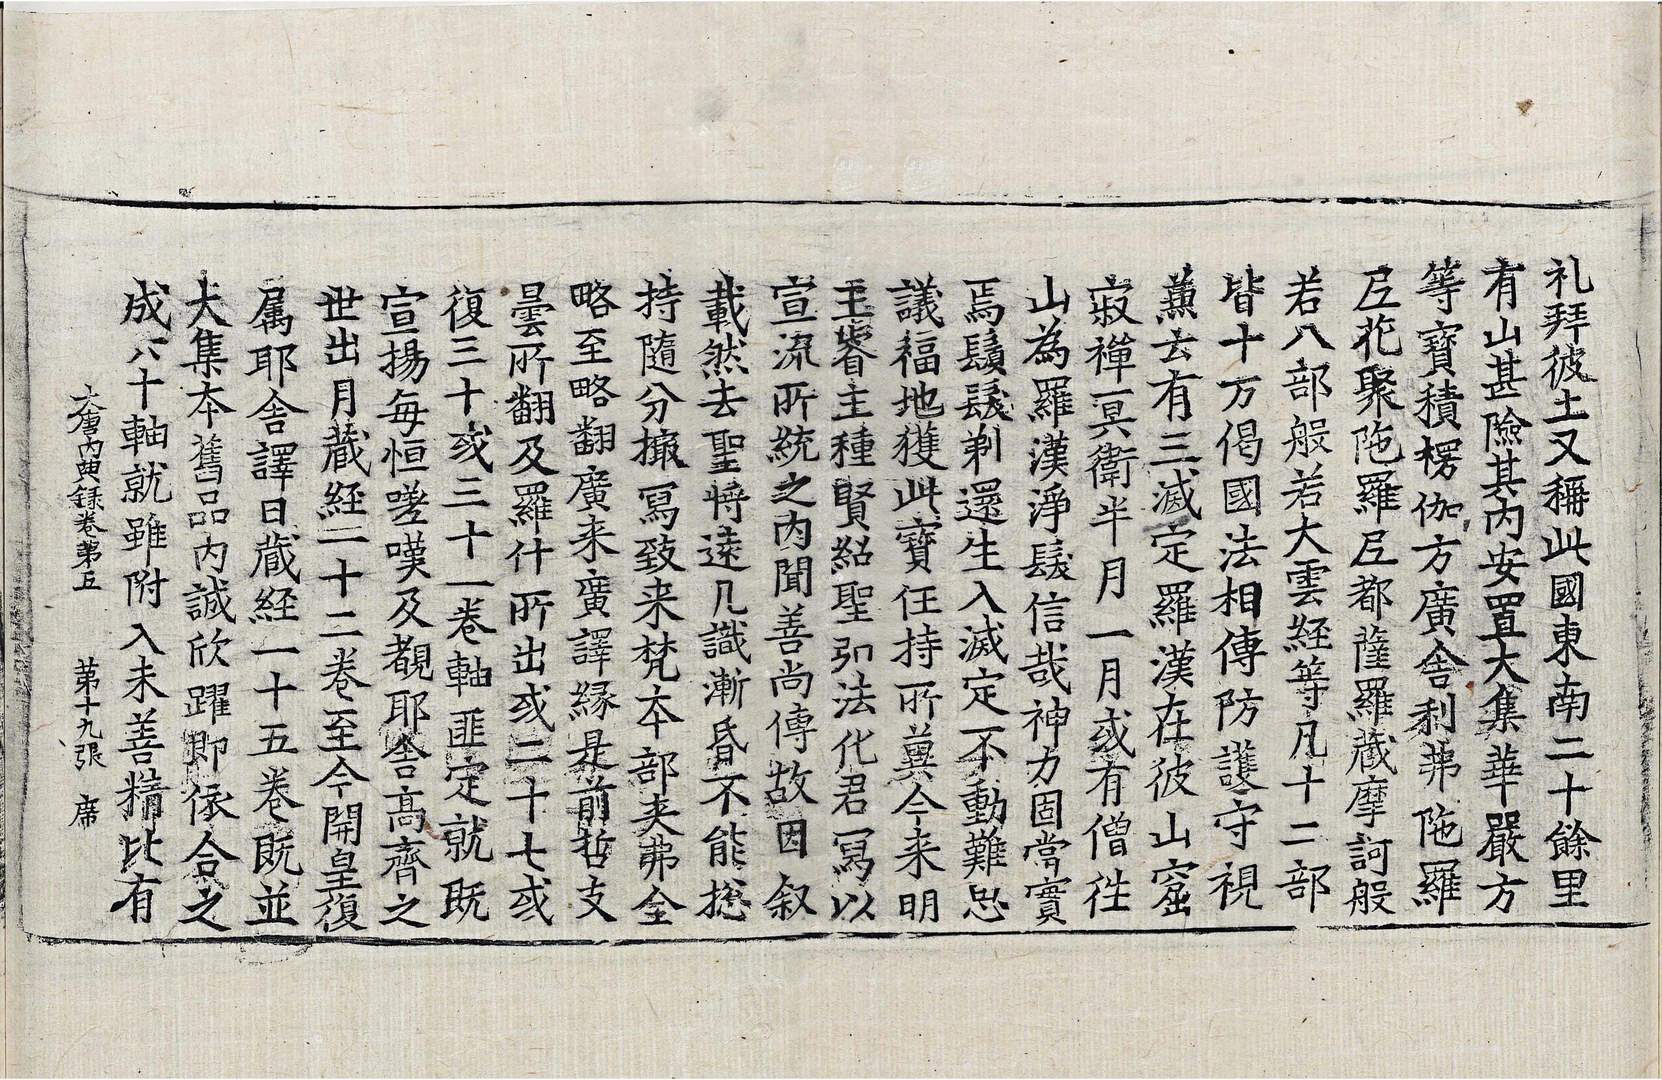 礼拜彼土又稱此國東南二十餘里
有山甚險其内安置大集華嚴方
等寶積楞伽方廣舍利弗陁羅
尼花聚陁羅尼都薩羅藏摩訶般
若八部般若大雲経等凡十二部
皆十万偈國法相傳防護守視
薫去有三滅定羅漢在彼山窟
寂禪冥衛半月一月或有僧徃
山為羅漢淨髮信哉神力固當實
焉鬚髮剃還生入滅定不動難思
議福地獲此寳任持所冀今来明
王睿主種賢紹聖弘法化君冩以
宣流所統之内聞善尚傳故因叙
載然去聖將遠凡識漸昏不能捴
持隨分撮冩致来梵本部夹弗全
略至略翻廣来廣譯縁是前哲支
曇所翻及羅什所出或二十七或
復三十或三十一巻軸匪定就既
宣揚每恒嗟嘆及覩耶舍高齊之
世出月藏経一十二巻至今開皇復
属耶舍譯日藏経一十五巻既並
大集夲舊品内誠欣躍即依合之
成六十軸就雖附入未善精比有
大唐内典録巻第五 第十九張 席